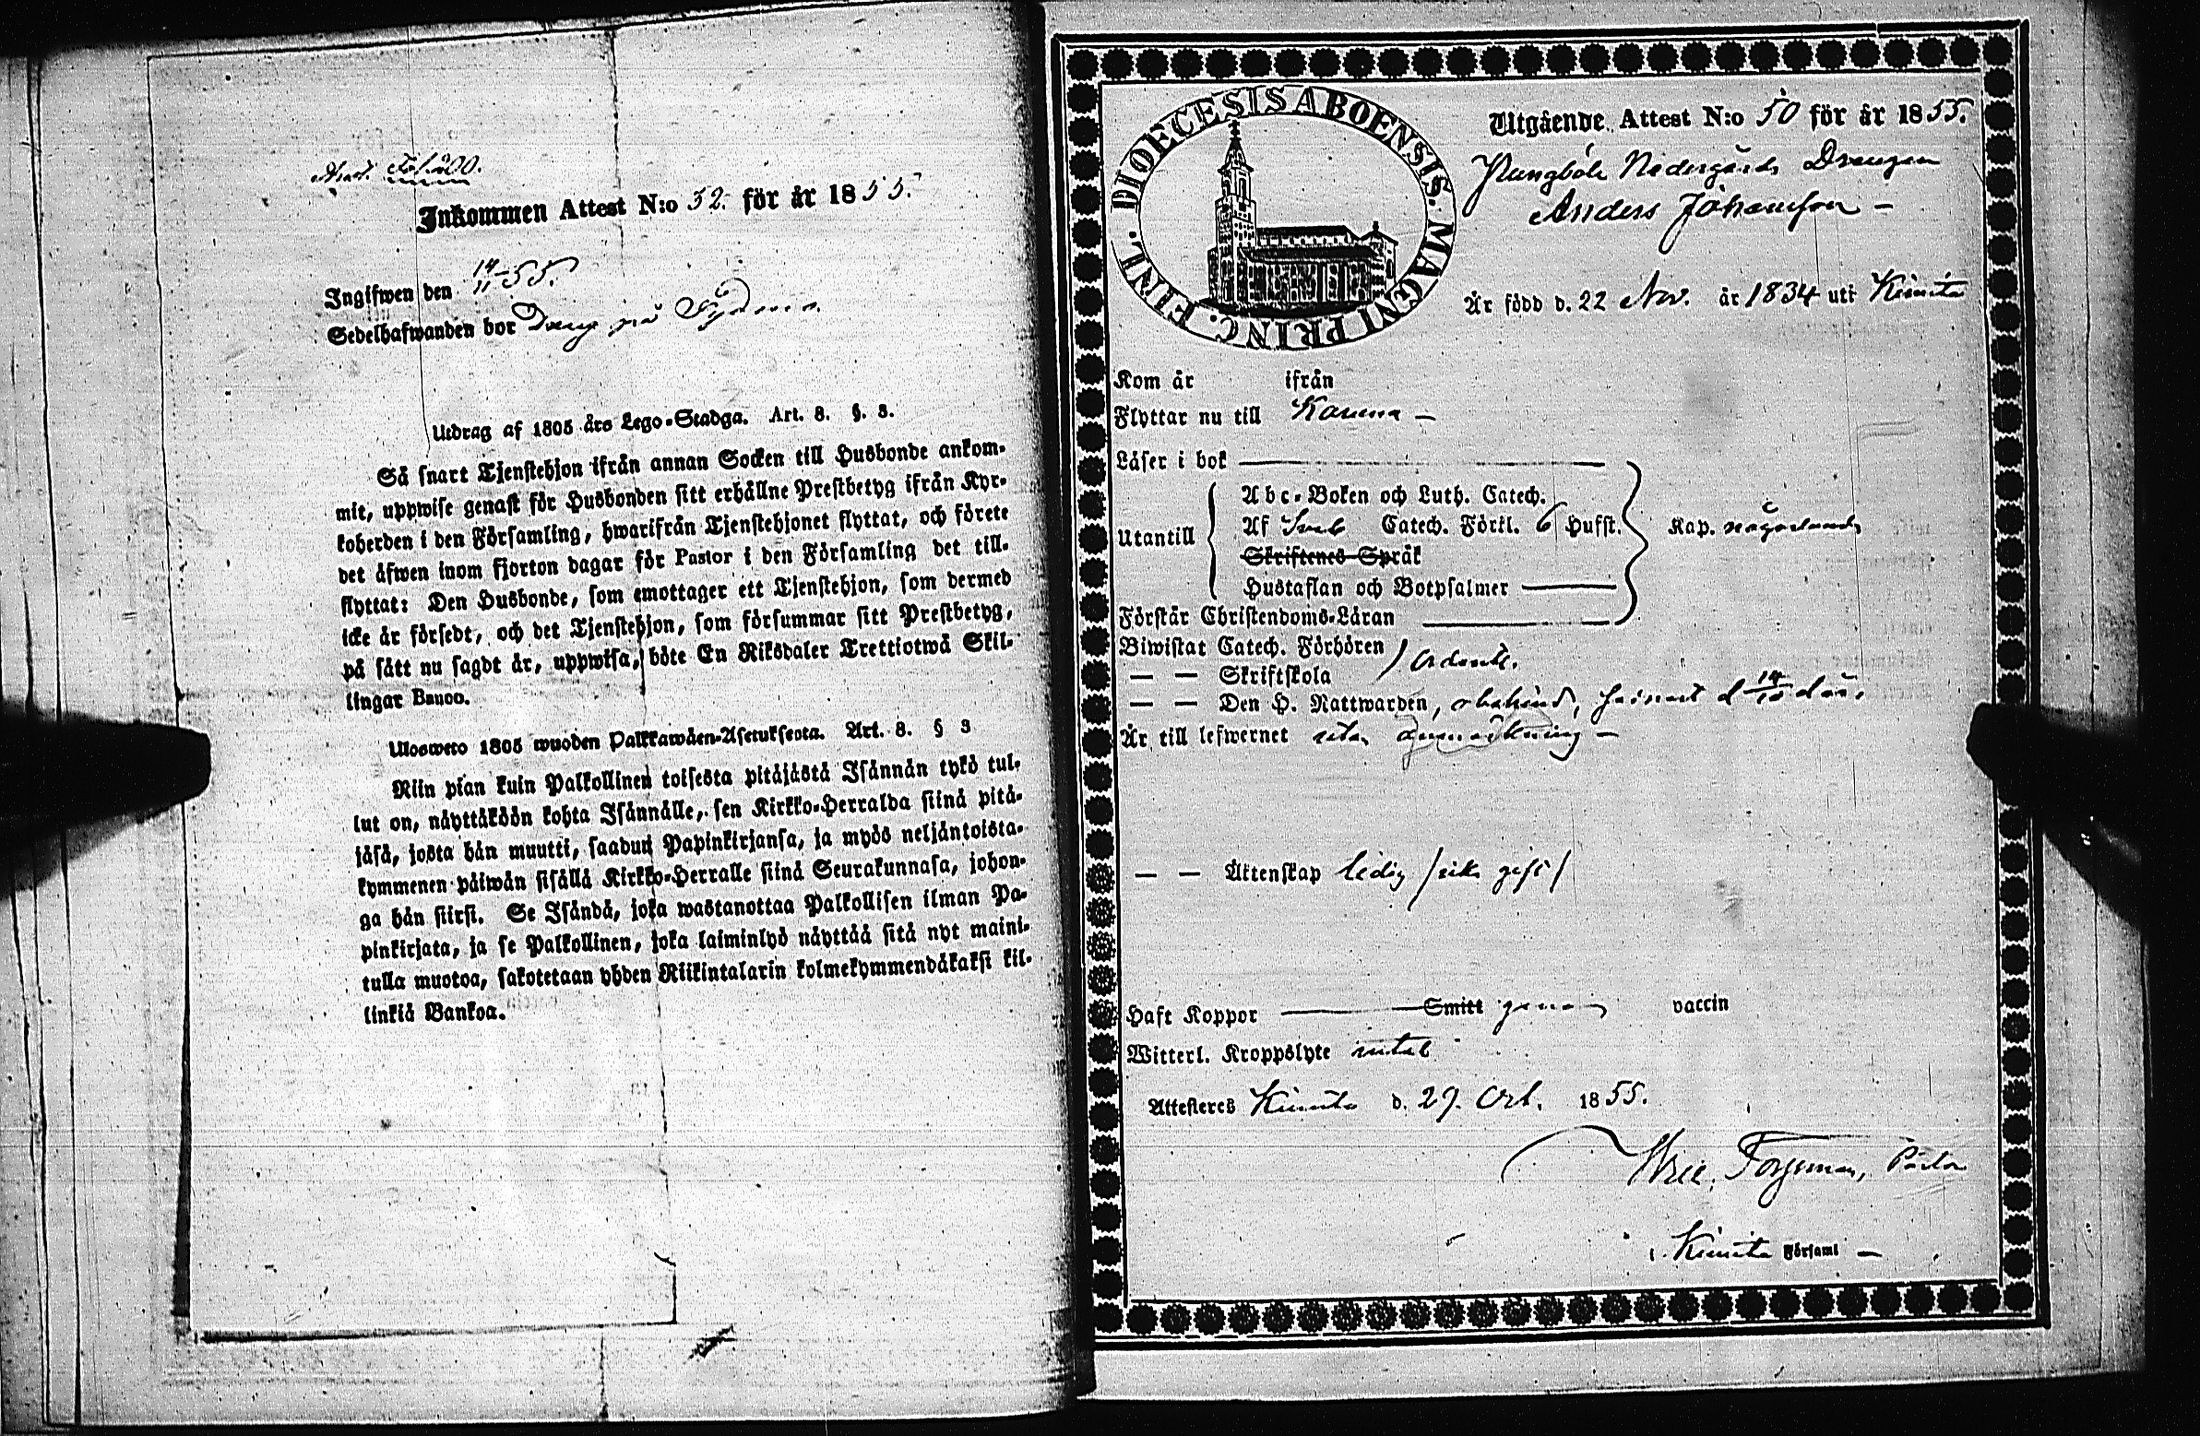 Inkommen Attest N:o 32. för år 1855.
Ingifwen den 14/11 55.
Sedelhafwanden bor Dreng på
Utdrag af 1805 års Lego-Stadga. Art. 8. §. 3.
Så snart Tjenstehjon ifrån annan Socken till Husbonde ankom-
mit, uppwise genast för Husbonden sitt erhållne Prestbetyg ifrån Kyr-
koherden i den Församling, hwarifrån Tjenstehjonet flyttat, och förete
det äfwen inom fjorton dagar för Pastor i den Församling det till-
flyttat: Den Husbonde, som emottager ett Tjenstehjon, som dermed
icke är försedt, och det Tjenstehjon, som försummar sitt Prestbetyg,
på sätt nu sagdt är, uppwisa, böte En Riksdaler Trettiotwå Skil-
lingar Banco.
Uloswето 1805 wuoden Palkkawäen-Asetuksesta. Art. 8. § 3
Niin pian kuin Palkollinen toisesta pitäjästä Isännän tykö tul-
lut on, näyttäköön kohta Isännälle, sen Kirkko-Herralda siinä pitä-
jäsä, josta hän muutti, saadun Papinkirjansa, ja myös neljäntoista-
kymmenen päiwän sisällä Kirkko-Herralle siinä Seurakunnasa, johon-
ga hän siirsi. Se Isändä, joka wastanottaa Palkollisen ilman Pa-
pinkirjata, ja se Palkollinen, joka laiminlyö näyttää sitä nyt maini-
tulla muotoa, sakotetaan yhden Riikintalarin kolmekymmendäkaksi kil-
linkiä Bankoa.
DIOECESIS ABOENSIS. MAGNI PRINC. FINL.
Utgående Attest N:o 50 för år 1855.
Pungböle Nedergårds Drengen
Anders Johansson –
Är född d. 22 Nov. år 1834 uti Kimito
Kom år ifrån
Flyttar nu till Karuna –
Läser i bok
Utantill
Abc-Boken och Luth. Catech.
Af Sveb Catech. Förkl. 6 Hufst.
Skriftenes Språk
Hustaflan och Botpsalmer
Kap. någorlunda
Förstår Christendoms-Läran
Biwistat Catech. Förhören
— — Skriftskola
— — Den H. Nattwarden, obehind, senast d 14/10 d. år.
Är till lefwernet utan anmärkning –
— — Äktenskap ledig /icke gift/
Haft Koppor Smitt genom vaccin
Witterl. Kroppslyte intet
Attesteres Kimito d. 29. Oct. 1855.
Pastor
i Kimito Församl –